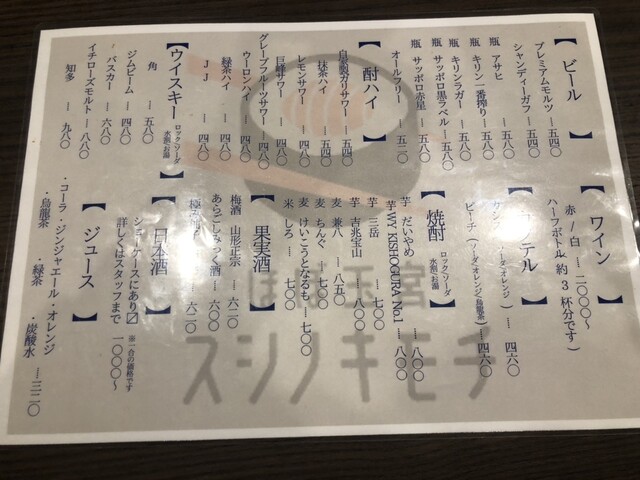 【ビール】
プレミアムモルツ ― 五四〇
シャンディーガフ ― 五八〇
瓶 アサヒ ― 五八〇
瓶 キリン一番搾り ― 五八〇
瓶 キリンラガー ― 五八〇
瓶 サッポロ黒ラベル ― 五八〇
瓶 サッポロ赤星 ― 五八〇
オールフリー ― 五二〇
【酎ハイ】
自家製ガリサワー ― 五四〇
抹茶ハイ ― 五四〇
レモンサワー ― 四八〇
巨峰サワー ― 四八〇
グレープフルーツサワー ― 四八〇
ウーロンハイ ― 四八〇
緑茶ハイ ― 四八〇
JJ ― 四八〇
【ウイスキー】 ロック・ソーダ 水割・お湯
角 ― 五八〇
ジムビーム ― 四八〇
バスカー ― 六八〇
イチローズモルト ― 八八〇
知多 ― 九八〇
【ワイン】
赤/白 ― 二〇〇〇〜
ハーフボトル(約3杯分です)
カクテル】
(ソーダ/オレンジ) ― 四六〇
ピーチ(ソーダ/オレンジ/烏龍茶) ― 四六〇
【焼酎】 ロック・ソーダ 水割・お湯
芋 だいやめ ― 八〇〇
芋 WY KISHOGURA No.1 ― 八〇〇
芋 三岳 ― 七〇〇
芋 吉兆宝山 ― 七〇〇
麦 兼八 ― 八五〇
麦 ちんぐ ― 七〇〇
麦 けいこうとなるも ― 七〇〇
米 しろ ― 七〇〇
【果実酒】
梅酒 山形正宗 ― 六二〇
あらごしみかん酒 ― 六〇〇
― 六二〇
【日本酒】
ショーケースにあり
詳しくはスタッフまで 一〇〇〇〜
※一合の価格です
【ジュース】
・コーラ・ジンジャエール・オレンジ
・烏龍茶 ・緑茶 ・炭酸水 ― 三二〇
スシノキモチ